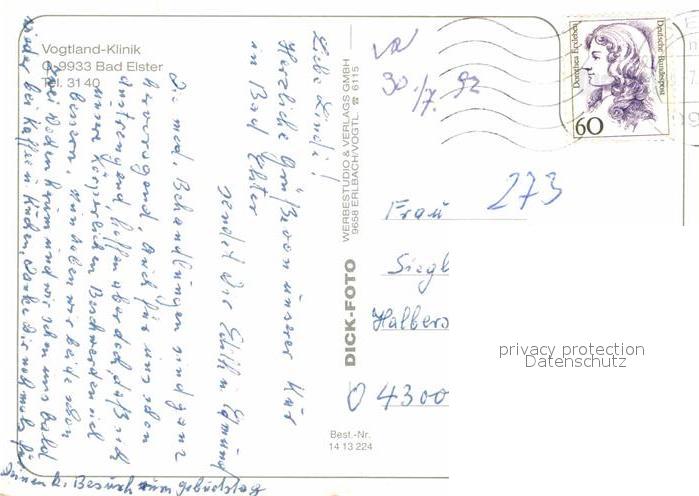 Vogtland-Klinik
O-9933 Bad Elster
Tel. 31 40
Liebe Lindi!
Herzliche Grüße von unserer Kur
in Bad Elster
sendet Dir
Die med. Behandlungen sind ganz
hervorragend, auch für uns schon
anstrengend, hoffen aber doch, daß sich
unsere körperlichen Beschwerden
bessern, nun haben wir beide schon
bei Kaffee u. Kuchen, Danke Dir nochmals für
Deinen l. Besuch zum Geburtstag
DICK-FOTO
WERBESTUDIO & VERLAGS GMBH
9658 ERLBACH/VOGTL. ☎ 6115
30./7. 92
Deutsche Bundespost
Dorothea Erxleben
60
273
Frau
Siegl
Halbers
O 4300
privacy protection
Datenschutz
Best.-Nr.
14 13 224